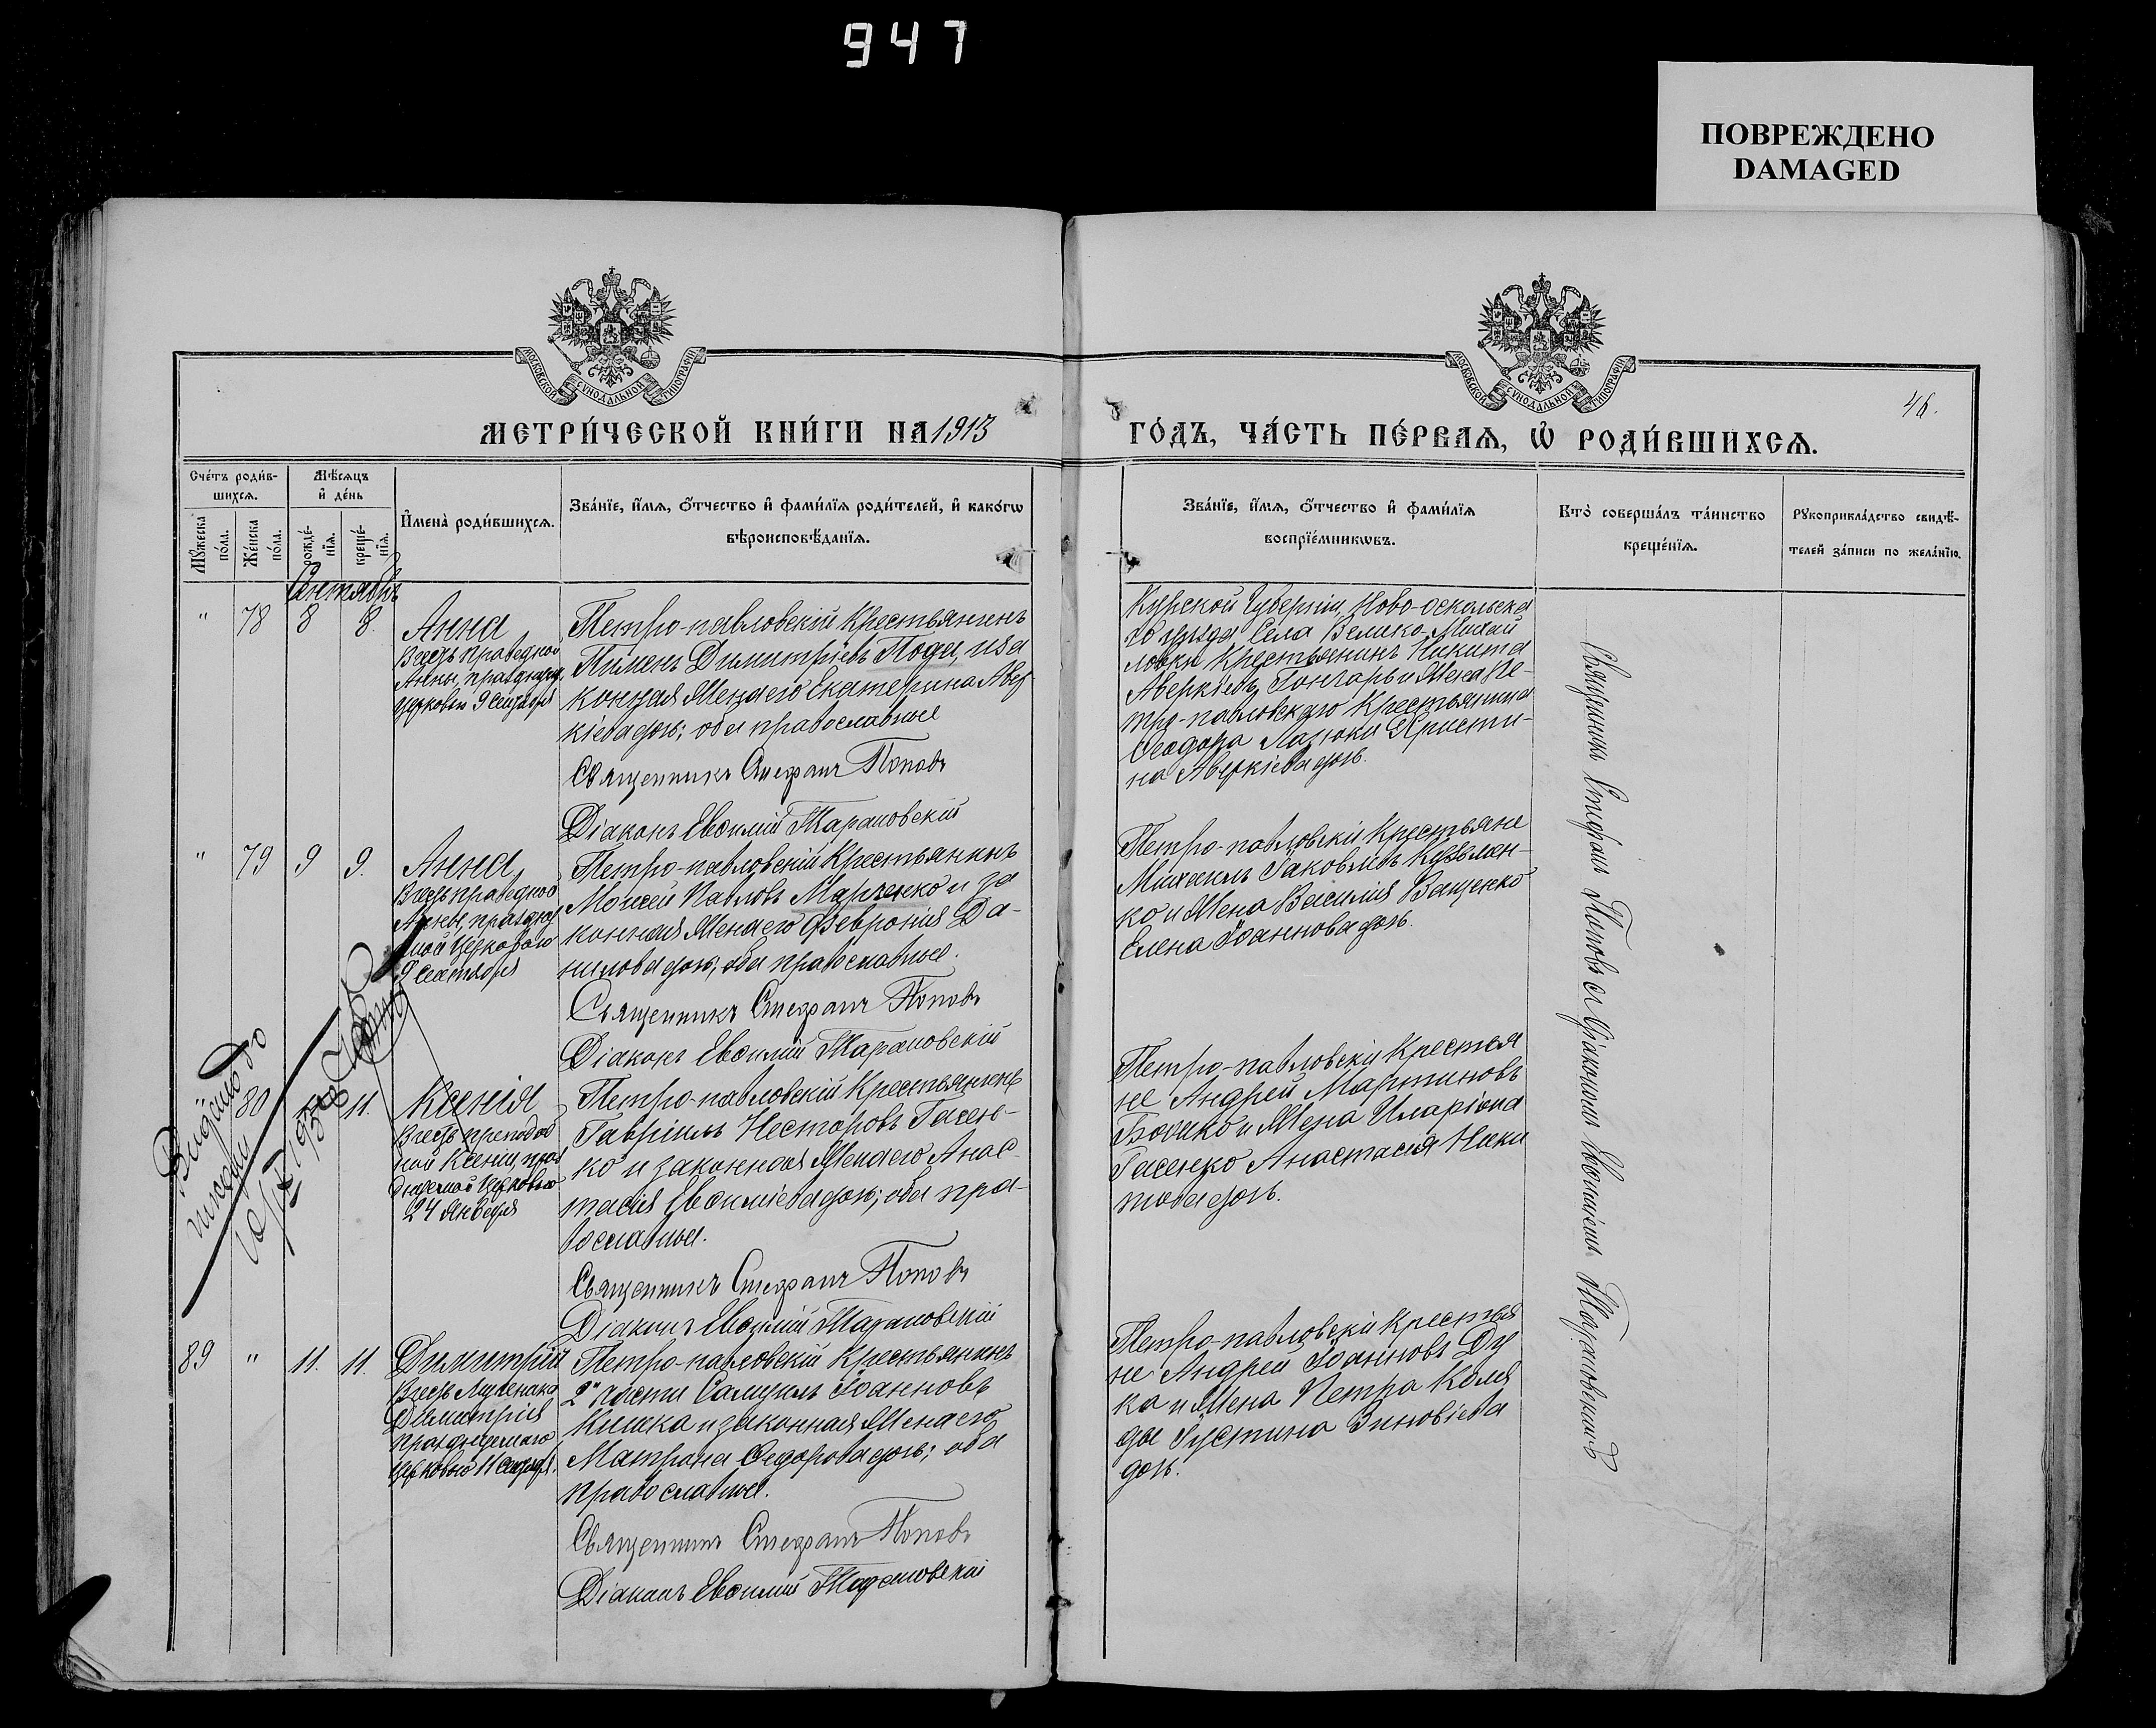 947
ПОВРЕЖДЕНО
DAMAGED
МОСКОВСКОЙ СѴНОДАЛЬНОЙ ТИПОГРАФІИ
МОСКОВСКОЙ СѴНОДАЛЬНОЙ ТИПОГРАФІИ
46.
МЕТРИ́ЧЕСКОЙ КНИ́ГИ НА 1913
ГО́ДЪ, ЧА́СТЬ ПЕ́РВАѦ, Ѡ҆ РОДИ́ВШИХСѦ.
Сче́тъ роди́в-
шихсѧ.
Мѣ́сѧцъ
и҆ де́нь
Мꙋ́жеска
по́ла.
Же́нска
по́ла.
рожде́-
нїѧ.
креще́-
нїѧ.
И҆мена̀ роди́вшихсѧ.
Зва́нїе, и҆́мѧ, ѻ҆́тчество и҆ фами́лїѧ роди́телей, и҆ како́гѡ
вѣроисповѣ́данїѧ.
Зва́нїе, и҆́мѧ, ѻ҆́тчество и҆ фами́лїѧ
воспрїе́мникѡвъ.
Кто̀ соверша́лъ та́инство
креще́нїѧ.
Рꙋкоприкла́дство свидѣ́-
телей за́писи по жела́нїю.
Сентябрь
" 78 8 8.
Анна
Въ честь праведной
Анны, праздну
церковью 9 Сентября
Петро-павловскій Крестьянинъ
Пименъ Димитріевъ Пода, и за
конная жена его Екатерина Авер
кіева дочь; оба православные
Священникъ Стефанъ Поповъ
Діаконъ Евѳимій Тарановскій
Курской Губерніи, Ново-оскольска
го уѣзда, Села Велико-Михай
ловки Крестьянинъ Никита
Аверкіевъ Гончаръ и жена Пе-
тро-павловскаго Крестьянина
Ѳеодора Лазюки Христи-
на Аверкіева дочь.
" 79 9 9.
Анна
Въ честь праведной
Анны, праздну
мой Церковью
9 Сентября
Петро-павловскій Крестьянинъ
Моисей Павловъ Марченко и за
конная жена его Февронія Да-
нилова дочь; оба православные.
Священникъ Стефанъ Поповъ
Діаконъ Евѳимій Тарановскій
Петро-павловскіи Крестьяне
Михаилъ Іаковлевъ Кузьмен-
ко и жена Василія Ващенко
Елена Іоаннова дочь.
80 11.
Ксенія
Въ честь преподоб
ной Ксеніи, праз
днуемой Церковью
24 Января
Петро-павловскій Крестьянинъ
Гавріилъ Несторовъ Гасен-
ко и законная жена его Анас-
тасія Евѳиміева дочь; оба пра-
вославные.
Священникъ Стефанъ Поповъ
Діаконъ Евѳимій Тарановскій
Петро-павловскіи Крестья
не Андрей Мартиновъ
и жена Иларіона
Гасенко Анастасія Ники
това дочь.
89 " 11. 11.
Димитрій
Въ честь Мученика
Димитрія
празднуемаго
Церковью 11 Сентября.
Петро-павловскій Крестьянинъ
2й части Самуилъ Іоанновъ
Кишка и законная жена его
Матрона Ѳедорова дочь; оба
православные.
Священникъ Стефанъ Поповъ
Діаконъ Евѳимій Тарановскій
Петро-павловскіи Крестья
не Андрей Іоанновъ Ду
ка и жена Петра Коля
ды Іустина Зиновіева
дочь.
Священникъ Стефанъ Поповъ съ Діакономъ Евѳиміемъ Тарановскимъ